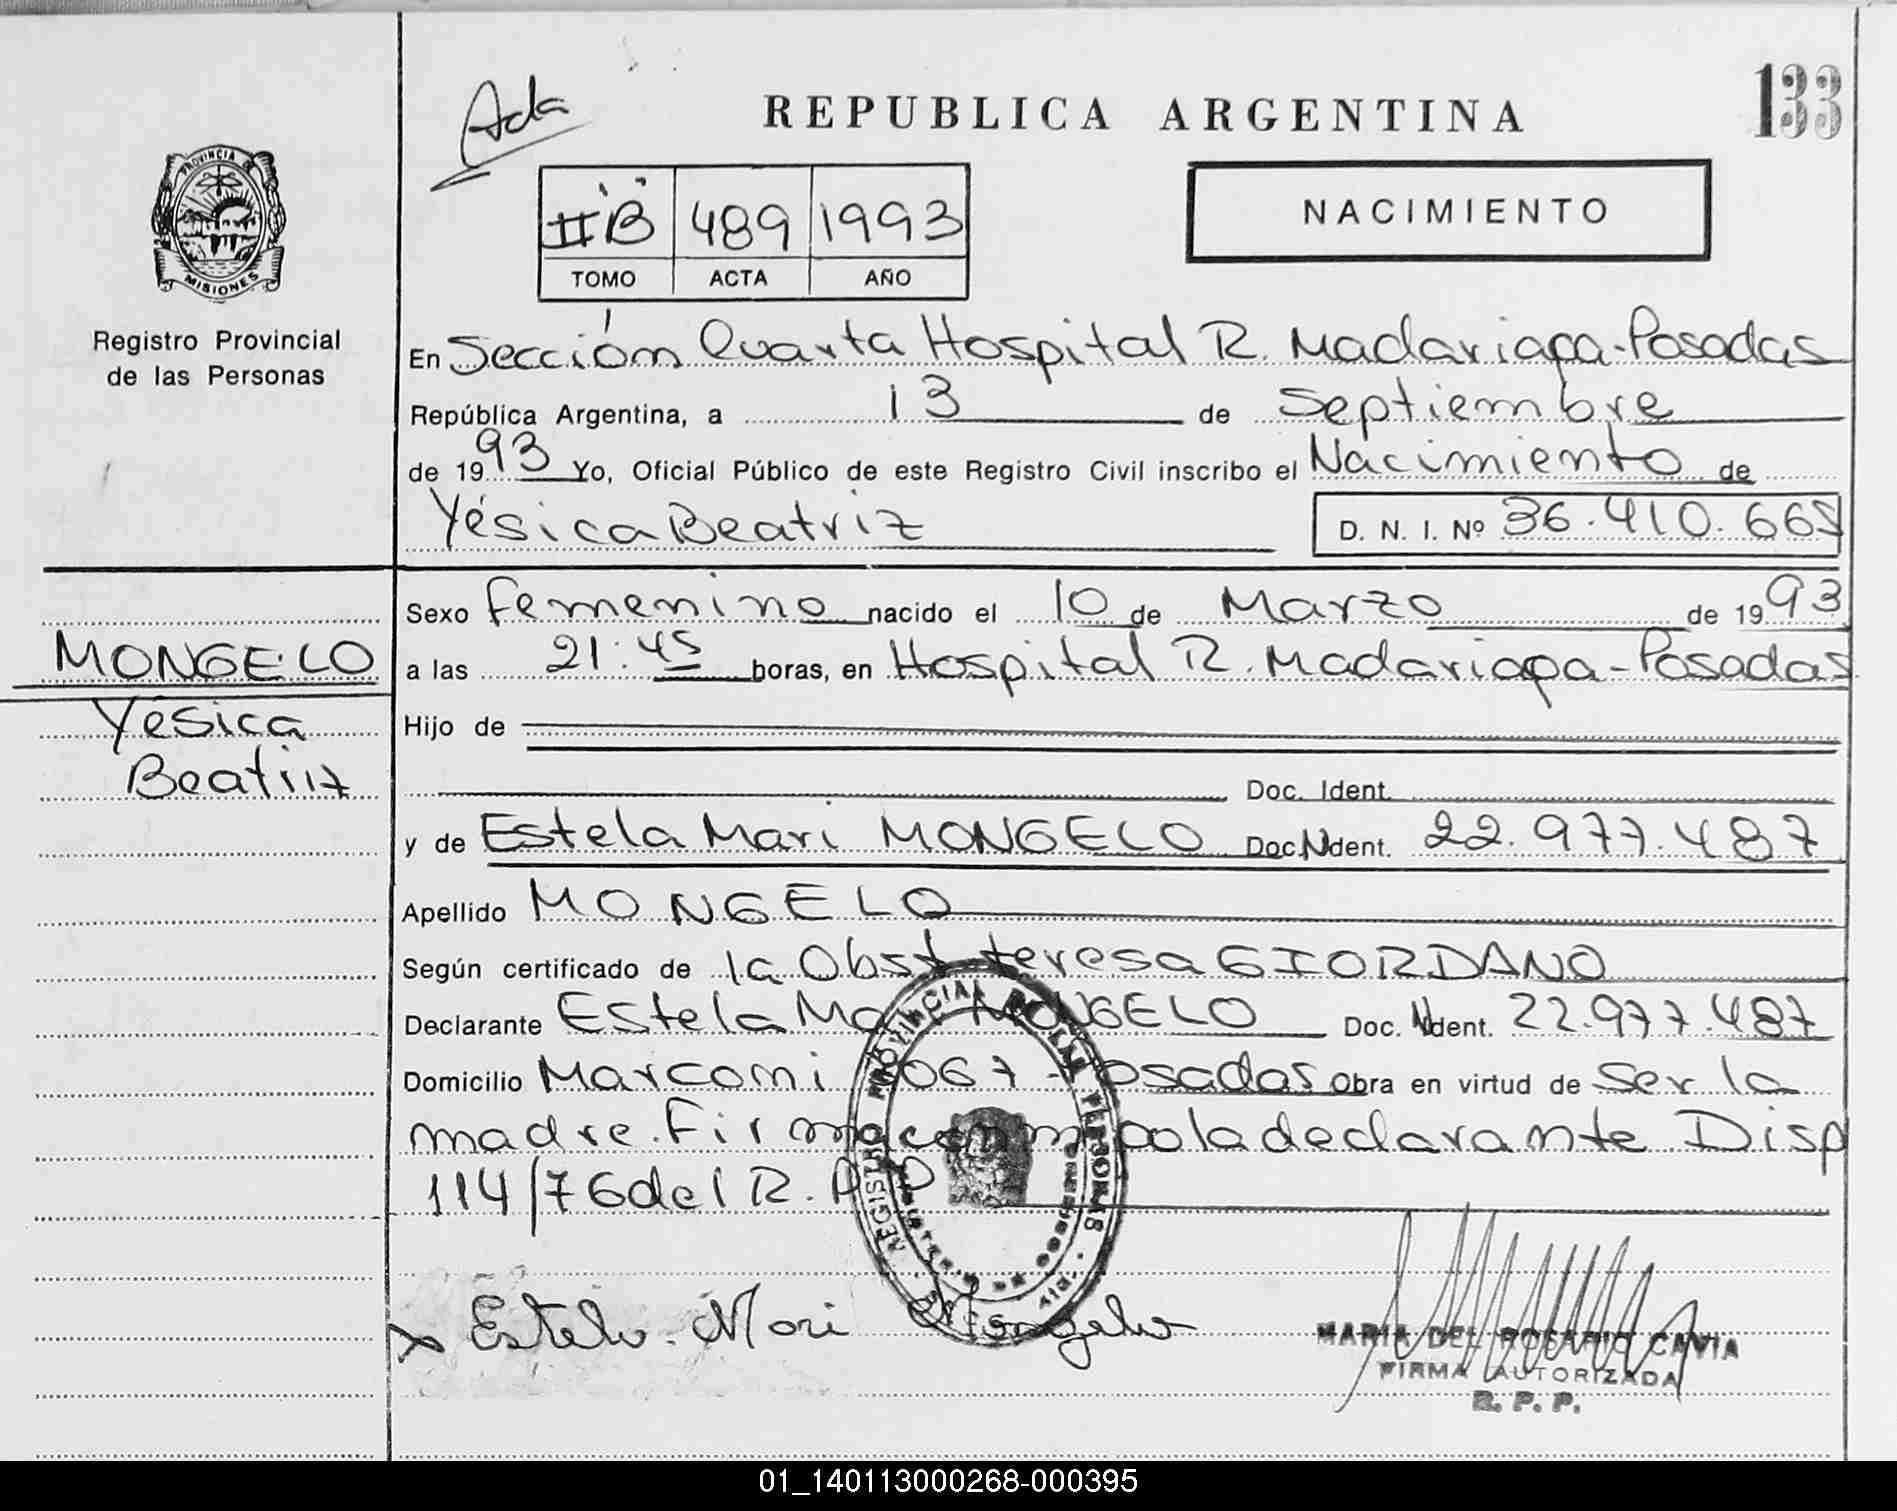 Ada
REPUBLICA ARGENTINA
133
PROVINCIA
MISIONES
Registro Provincial
de las Personas
II B 489 1993
TOMO ACTA AÑO
NACIMIENTO
En Sección Cuarta Hospital R. Madariaga-Posadas
República Argentina, a 13 de Septiembre
de 1993 Yo, Oficial Público de este Registro Civil inscribo el Nacimiento de
Yésica Beatriz D. N. I. Nº 36.410.665
Sexo Femenino nacido el 10 de Marzo de 1993
MONGELO
a las 21:45 horas, en Hospital R. Madariaga-Posadas
Yésica
Hijo de
Beatriz
Doc. Ident.
y de Estela Mari MONGELO Doc. Ident. 22.977.487
Apellido MONGELO
Según certificado de la Obst. teresa GIORDANO
Declarante Estela Mari MONGELO Doc. Ident. 22.977.487
Domicilio Marconi 067 - Posadas obra en virtud de ser la
madre. Firma conmigo la declarante Disp
114/76 del R. P. P.
REGISTRO PROVINCIAL DE LAS PERSONAS
x Estela Mari Mongelo
MARIA DEL ROSARIO CAVIA
FIRMA AUTORIZADA
R. P. P.
01_140113000268-000395